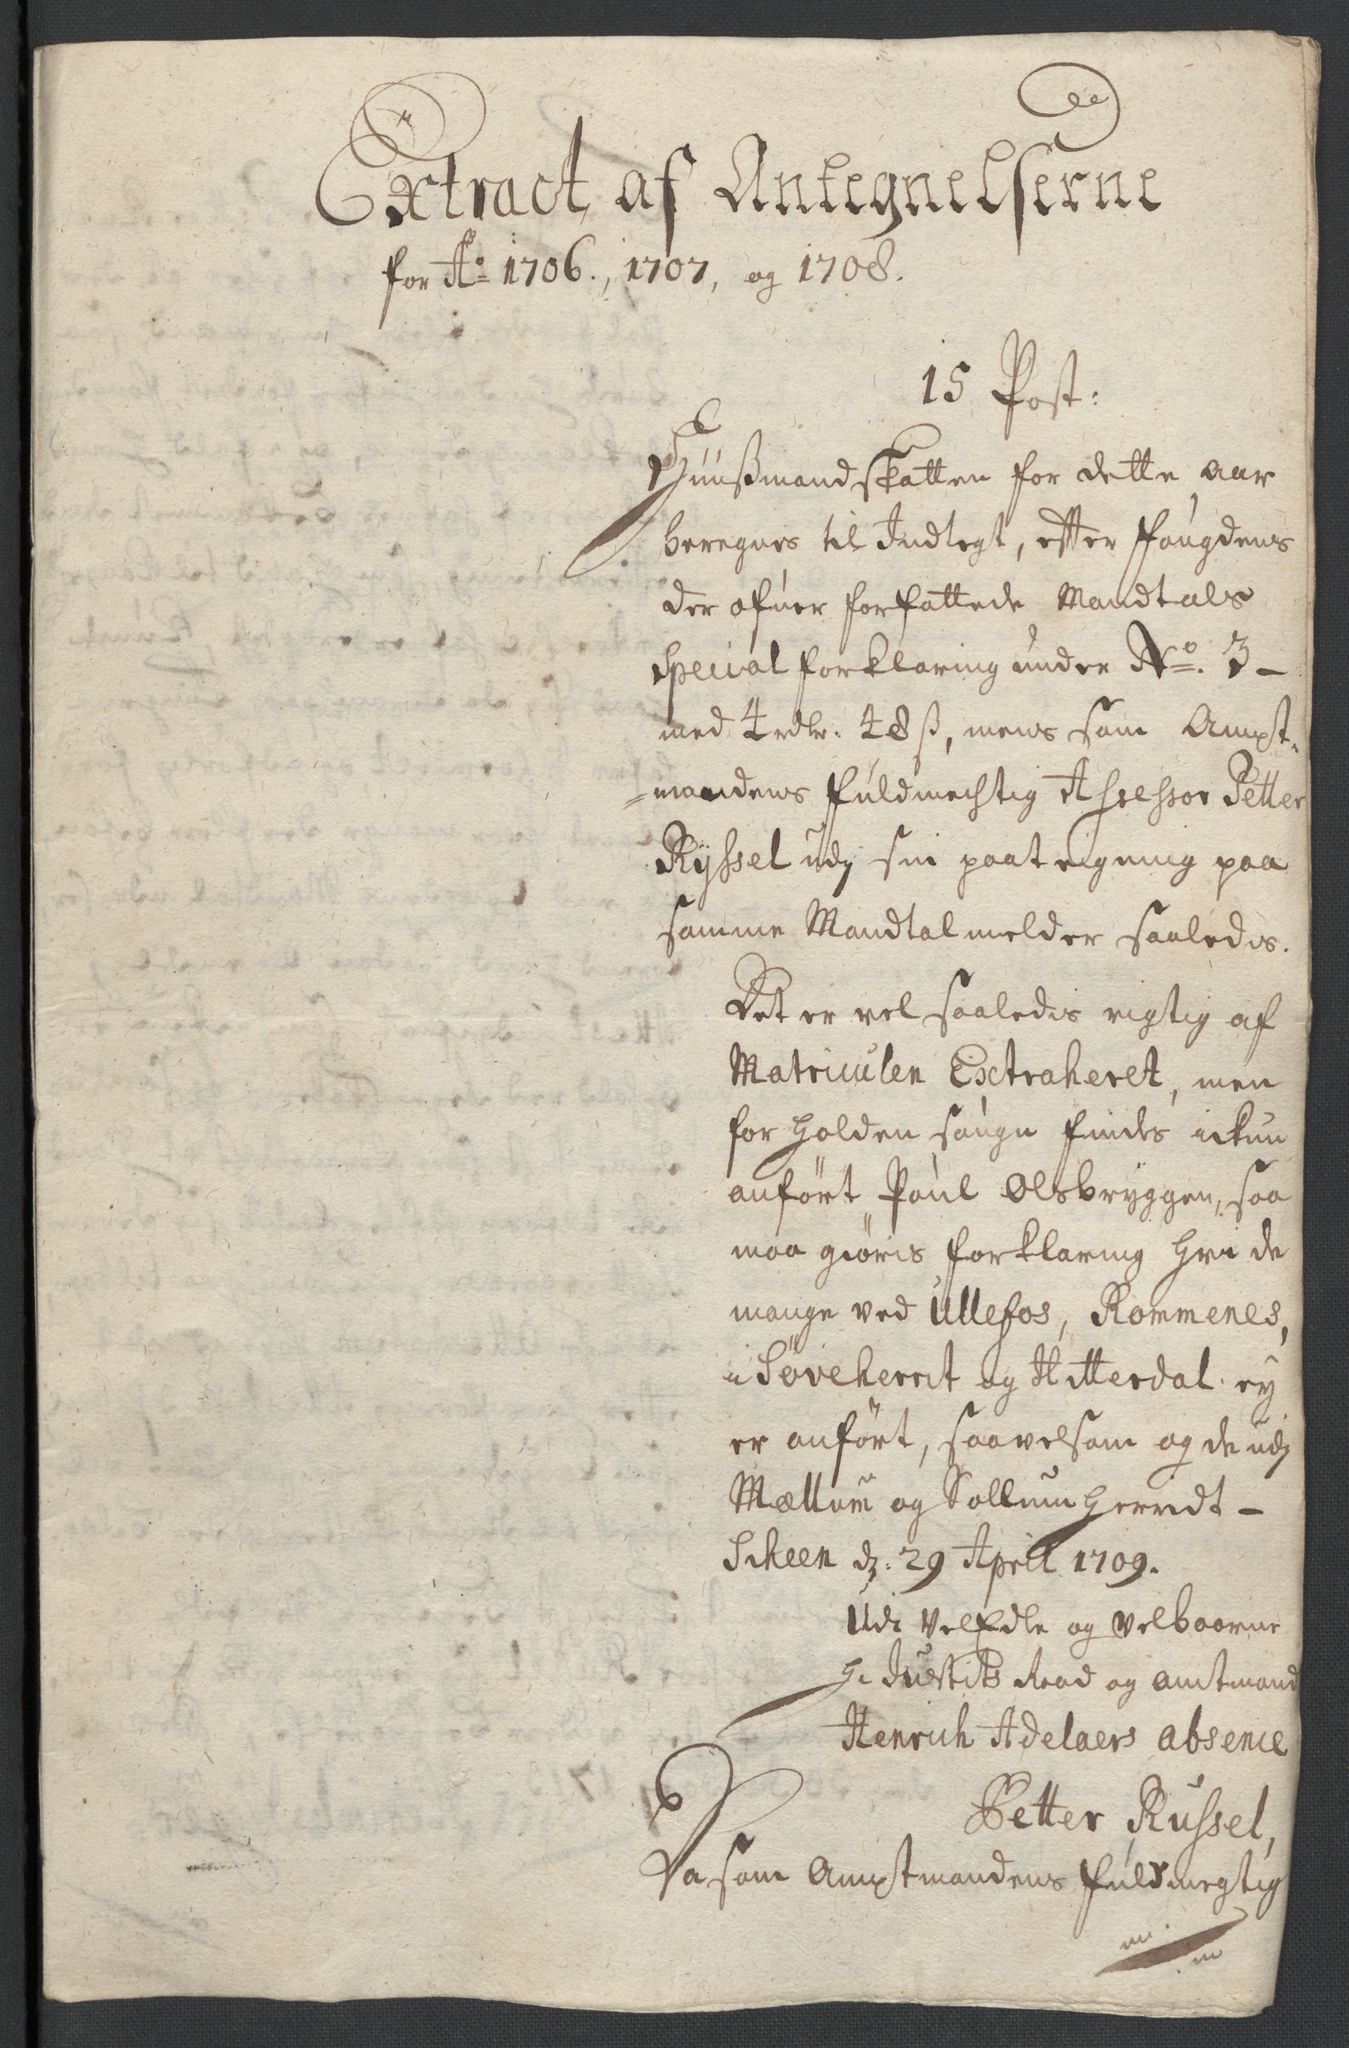 Extract af Antegnelserne
for Ao 1706., 1707, og 1708.
15 Post:
Huusmandskatten for dette aar
beregnes til Indtegt, efter fougdens
der ofuer forfattede Mandtals
special forklaring under No. 3 –
med 4 rdlr. 48 ß, mens som Ampt-
=mandens fuldmechtig Assessor Petter
Ryssel udj sin paategning paa
samme Mandtal melder saaledis.
Det er vel saaledis rigtig af
Matriculen Extraheret, men
for Holden sougn findes ickun
anført Poul Olsbryggen, saa
maa giøris forklaring hvi de
mange ved Ullefos, Rommenes,
i Søveherrit og Hitterdal ey
er anført, saavelsom og de udj
Mællum og Sollum Herridt –
Scheen dz: 29 Aprill 1709.
Udi VelEdle og Velbaarne
Hr Justits Raad og amtmand
Henrich Adelaers absence
Petter Russel,
Da som Amptmandens fuldmegtig